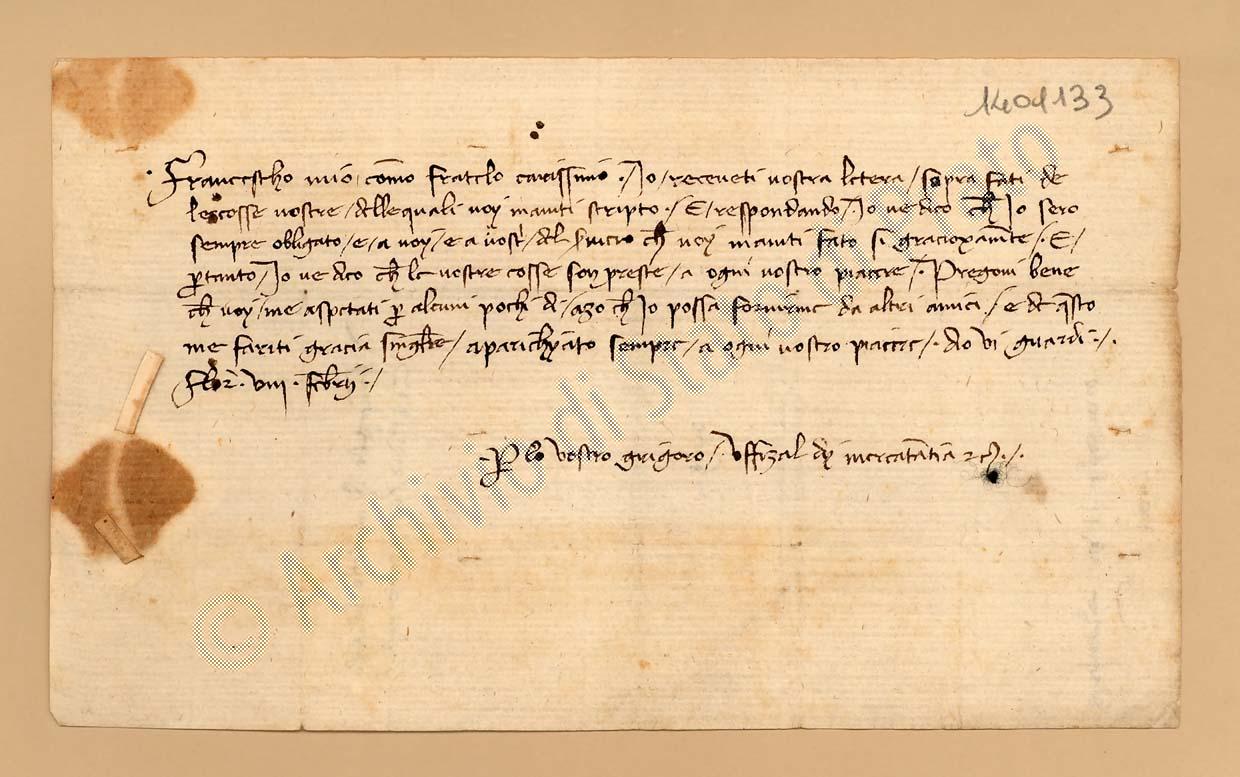 1404133
Francescho mio, como fratelo carissimo. Io / receveti vostra letera / sopra fati de
le cosse vostre / delle quali voy m'aviti scripto. E / respondando / Io ve dico ch Io sero
sempre obligato / e / a voy / e a vostri / del ch voy m'aviti fato si gracioxamte. E.
ptanto / Io ve dico ch le vostre cosse son preste / a ogni vostro piacere /. Pregovi bene
ch voy / me aspetati p alcuni pochi di / azo ch Io possa fornirme da altri amici / e de qsto
me fariti gracia / aparichyato sempre / a ogni vostro piacere /. Dio vi guardi.
Flor. viii. febrii.
P lo vostro grigoro / offizal dy mercatantia
© Archivio di Stato di Prato